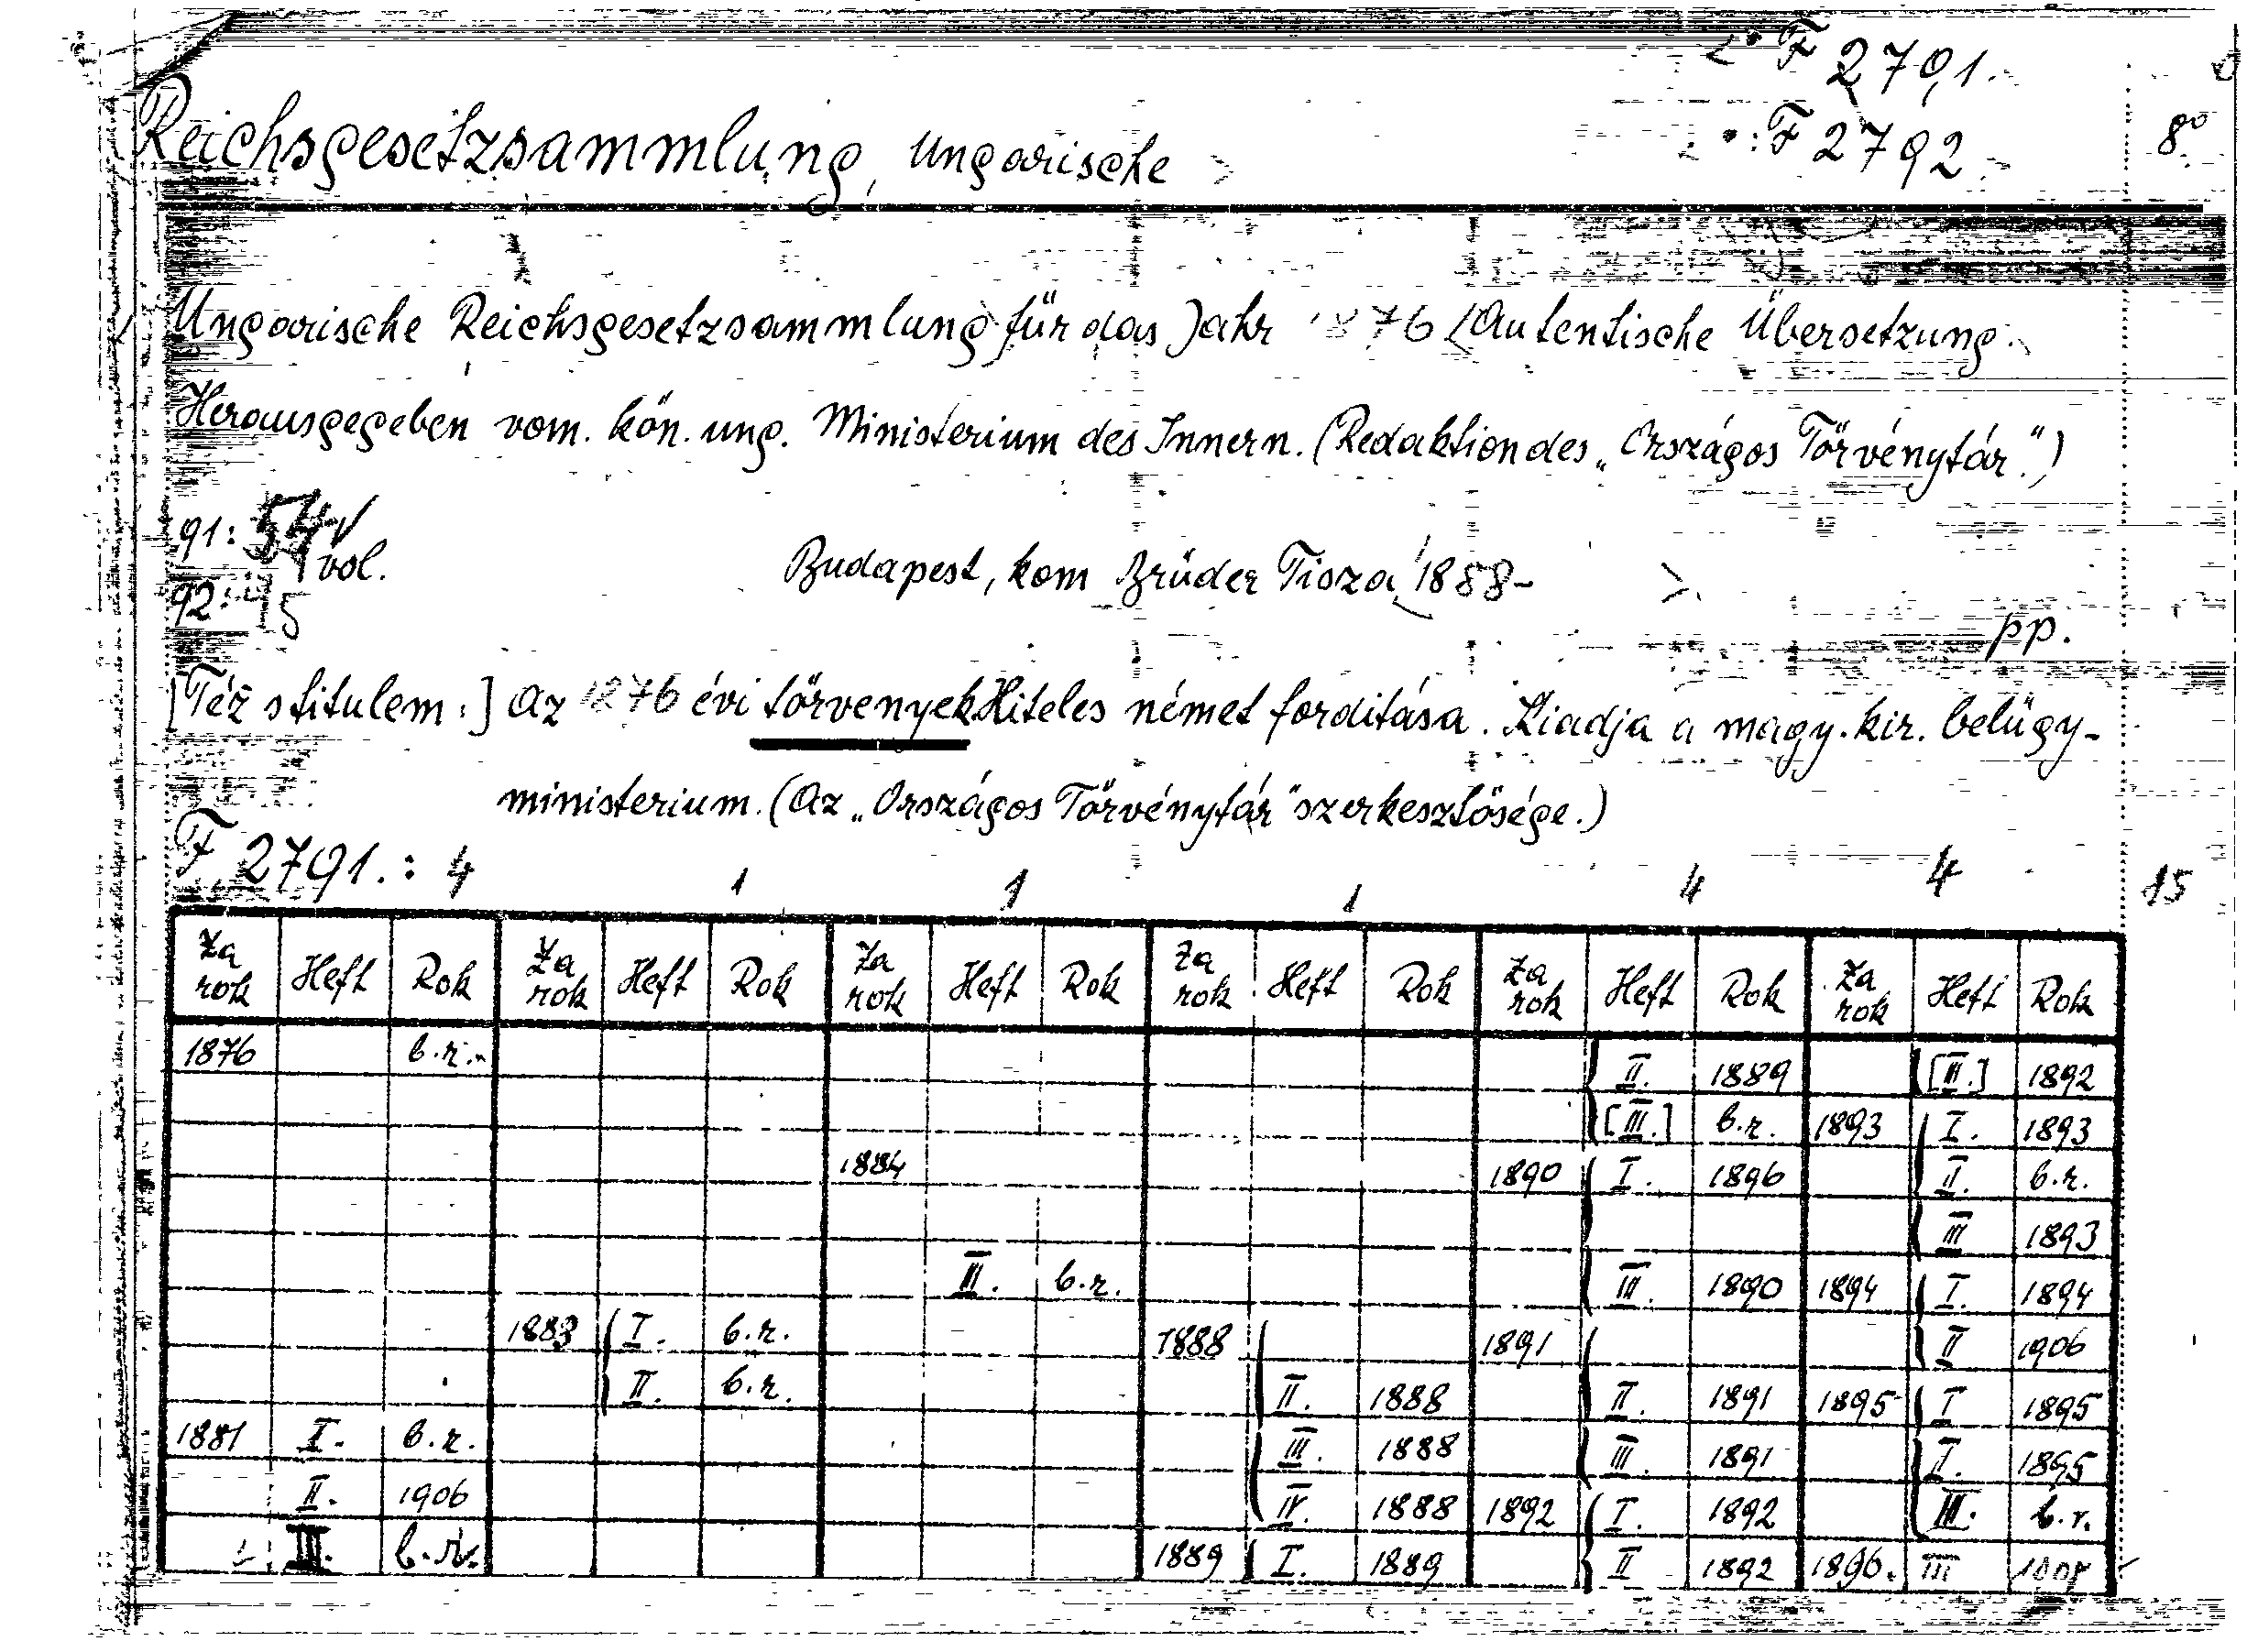 F 2791.
Reichsgesetzsammlung, Ungarische F 2792 8°
Ungarische Reichsgesetzsammlung für das Jahr 1876 (Autentische Übersetzung.
Herausgegeben vom. kön. ung. Ministerium des Innern. (Redaktion des „Országos Törvénytár.")
91: 54
vol.
92: 15
Budapest, kom Brüder Tisza 1888-
pp.
[Též s titulem:] Az 1876 évi törvenyek Hiteles német forditása. Kiadja a magy. kir. belügy-
ministerium. (Az „Országos Törvénytár" szerkesztősége.)
F 2791.: 4 1 1 1 4 4 15
Za rok Heft Rok Za rok Heft Rok Za rok Heft Rok Za rok Heft Rok Za rok Heft Rok Za rok Heft Rok
1876 b.r. II. 1889 [III.] 1892
[III.] b.r. 1893 I. 1893
1884 1890 I. 1896 II. b.r.
III 1893
II. b.r. III. 1890 1894 I. 1894
1883 I. b.r. 1888 1891 II 1906
II. b.r. II. 1888 II. 1891 1895 I 1895
1881 I. b.r. III. 1888 III. 1891 I. 1895
II. 1906 IV. 1888 1892 I. 1892 III. b.r.
III. b.r. 1889 I. 1889 II 1892 1896. III